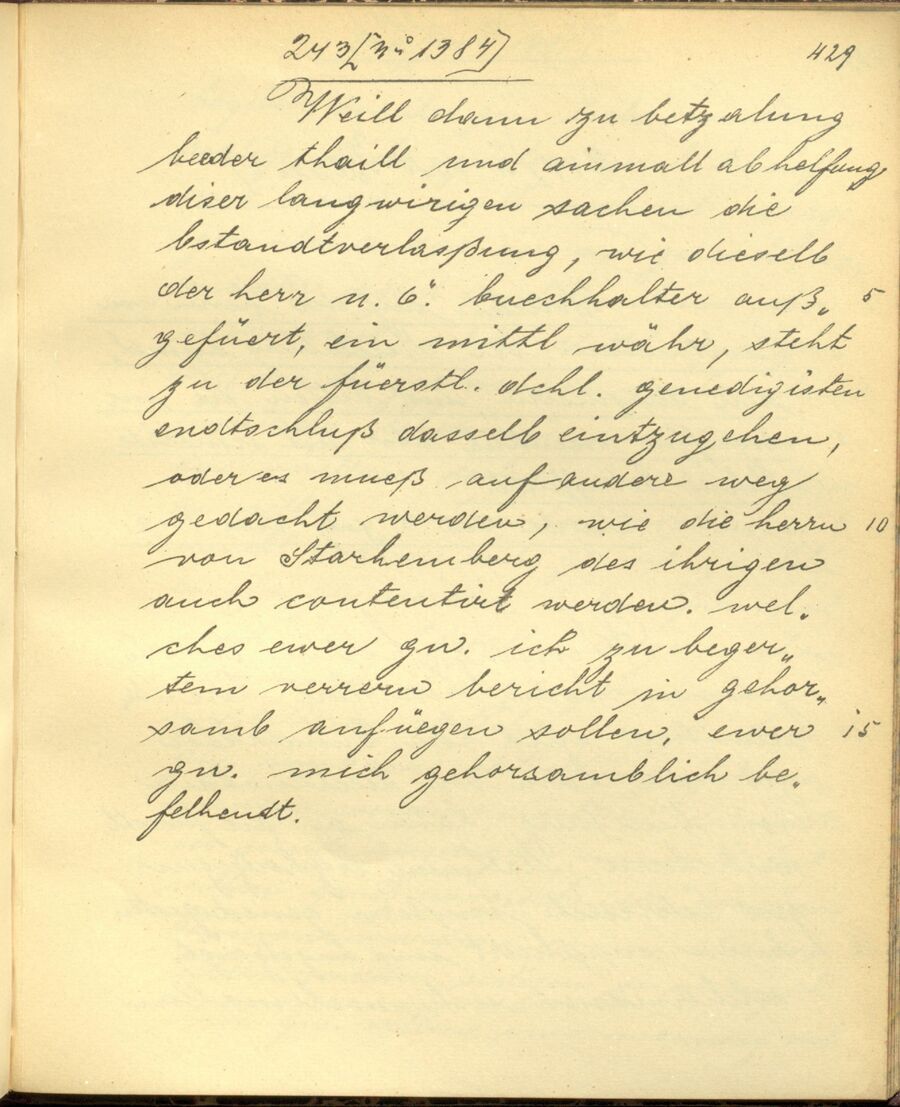 243 [No 1384] 429
Weill dann zu betzalung
beeder thaill und ainmall abhelfung
diser langwirigen sachen die
bstandtverlaßung, wie dieselb
der herr n. ö. buechhalter auß„ 5
gefüert, ein mittl währ, steht
zu der füerstl. dchl. genedigisten
endtschluß dasselb eintzugehen,
oder es mueß auf andere weg
gedacht werden, wie die herrn 10
von Starhemberg des ihrigen
auch contentirt werden. wel„
ches ewer gn. ich zu beger„
tem verrern bericht in gehor„
samb anfüegen sollen, ewer 15
gn. mich gehorsamblich be„
felhendt.